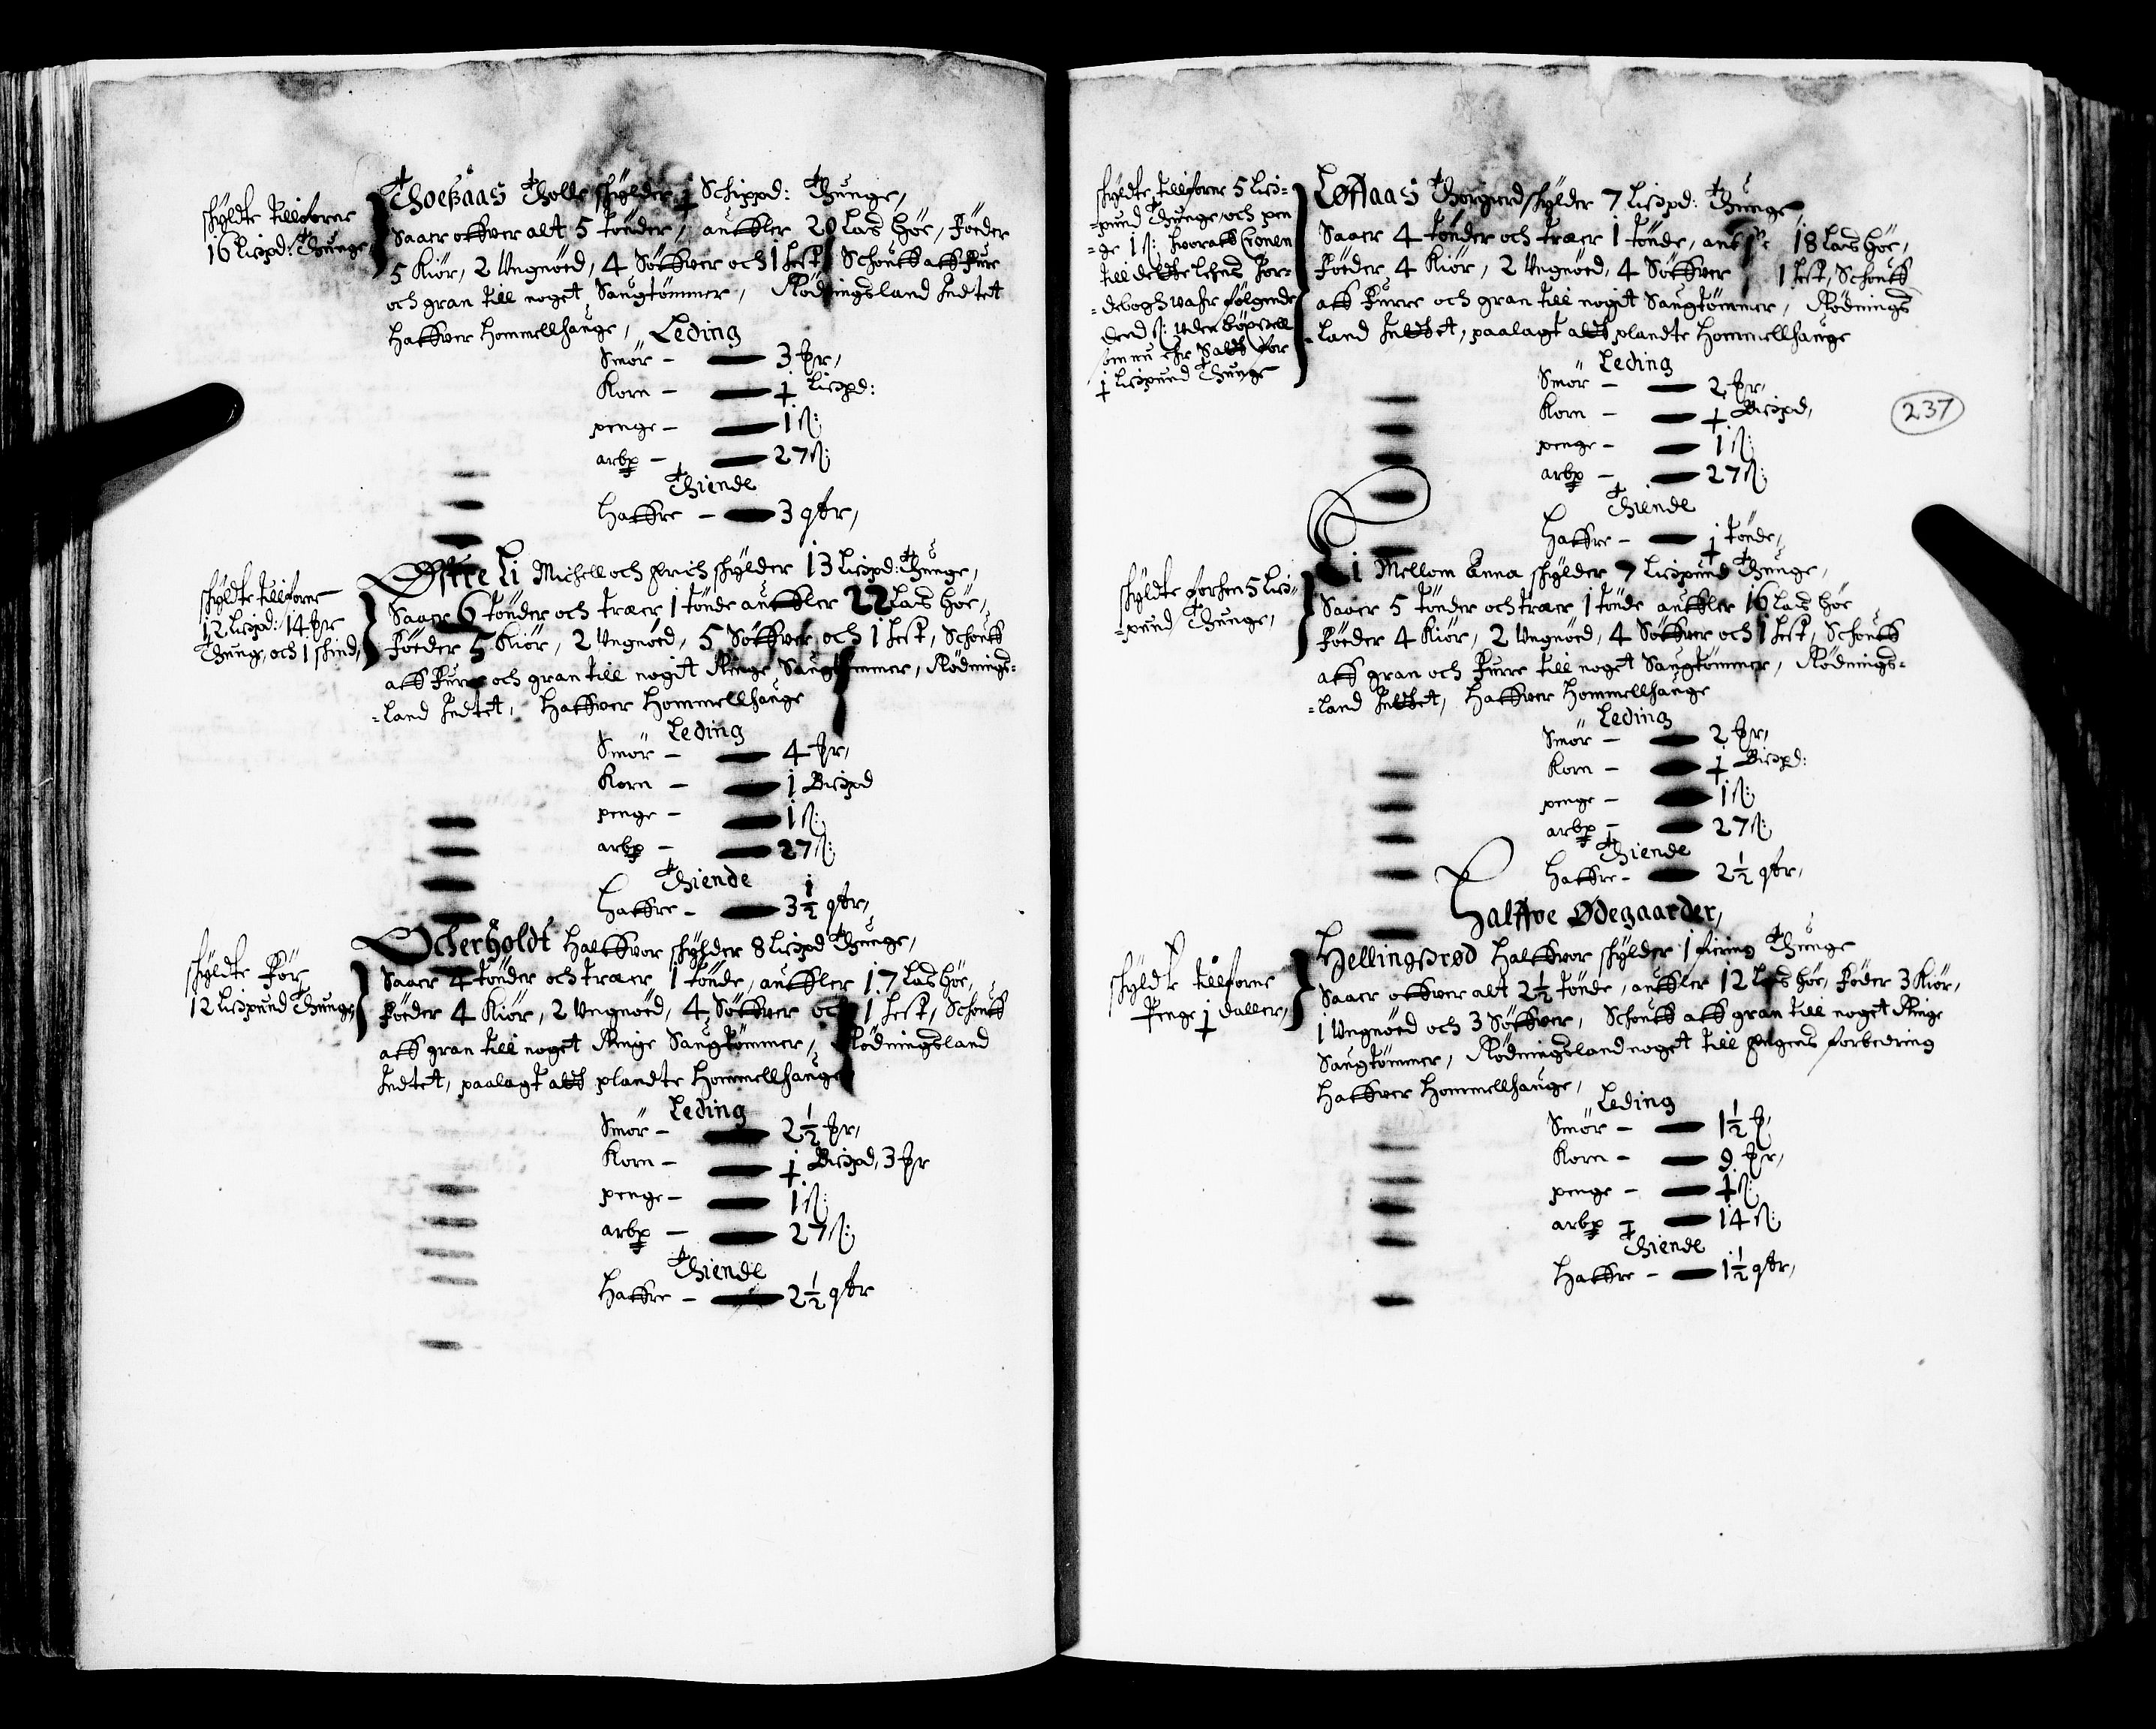 skyldte tillforne
16 Lispd: Thunge
Thoeßaas Tholle skylder ½ Schippd: Thunge,
Saaer offwer alt 5 tønder, auffler 20 Las høe, Føeder
5 Kiør, 2 Ungnøed, 4 Søffwer och 1 Hest, Schouff aff Fure
och gran till noget Saugtømmer, Rødningsland Indtet
haffwer hommellhauge,
Leding
Smør – 3 ℔r,
Korn – ½ Lispd:
penge – 1 ß:
arbp – 27 ß:
Thiende
haffre – 3 qtr,
skyldte tillforne
12 Lispd: 14 ℔r
Thung, och 1 skind,
Østre Li Michell och Erich skylder 13 Lispd: Thunge,
Saaer 6 tønder och traer 1 tønde auffler 22 Las høe,
Føeder 5 Kiør, 2 Ungnøed, 5 Søffwer och 1 Hest, Schouff
aff Furre och gran till nogit Ringe Saugtømmer, Rødnings=
=land Indtet, haffwer hommellhauge
Leding
Smør – 4 ℔r,
Korn – 1 Bispd
penge – 1 ß:
arbp – 27 ß:
Thiende
haffre – 3½ qtr,
skyldte Før
12 Lispund Thunge,
Ocherholdt halffvor skylder 8 Lispd Thunge,
Saaer 4 tønder och traer 1 tønde, auffler 17 Las høe,
Føeder 4 Kiør, 2 Ungnøed, 4 Søffwer och 1 Hest, Schouff
aff gran till noget Ringe Saugtømmer, Rødningsland
Indtet, paalagt att plandte hommellhauge
Leding
Smør – 2½ ℔r,
Korn – ½ Bispd, 3 ℔r
penge – 1 ß:
arbp – 27 ß:
Thiende
haffre – 2½ qtr
skyldte tillforne 5 Lis=
=pund Thunge, och pen
=ge 1 ß: hvoraff Cronen
till dette Lehns Jor=
=debogh wafr følgende
deed ß: uden bøxell
som nu ehr Satt for
½ Lispund Thunge
Løffaas Thorgierd skylder 7 Lispd: Thunge,
Saaer 4 tønder och traer 1 tønde, 18 Las høe,
Føeder 4 Kiør, 2 Ungnøed, 4 Søffwer 1 Hest, Schouff
aff Furre och gran till nogit Saugtømmer, Rødnings
=land Indtet, paalagt att plandte hommellhauge
Leding
Smør – 2 ℔r,
Korn – ½ Bispd,
penge – 1 ß:
arbp – 27 ß:
237
Thiende
haffre – ½ tønde,
skyldte forhen 5 Lis=
=pund Thunge,
Li Mellom Anna skylder 7 Lispund Thunge,
Saaer 5 tønder och traer 1 tønde auffler 16 Las høe
Føeder 4 Kiør, 2 Ungnøed, 4 Søffwer och 1 Hest, Schouff
aff gran och Furre till noget Saugtømmer, Rødnings=
=land Indtet, haffwer hommellhauge
Leding
Smør – 2 ℔r,
Korn – ½ Bispd:
penge – 1 ß:
arbp – 27 ß:
Thiende
haffre – 2½ qtr,
Halffve Ødegaarder,
skyldte tillforne
Penge ½ daller,
Hellingsrød halffvor skylder 1 fiering Thunge
Saaer offwer alt 2½ tønde, auffler 12 Las høe, Føder 3 Kiør,
1 Ungnøed och 3 Søffwer, Schouff aff gran till noget Ringe
Saugtømmer, Rødningsland noget till Engens forbedring
haffwer hommellhauge,
Leding
Smør – 1½ ℔
Korn – 9 ℔r,
penge – ½ ß:
arbp – 14 ß:
Thiende
haffre – 1½ qtr,